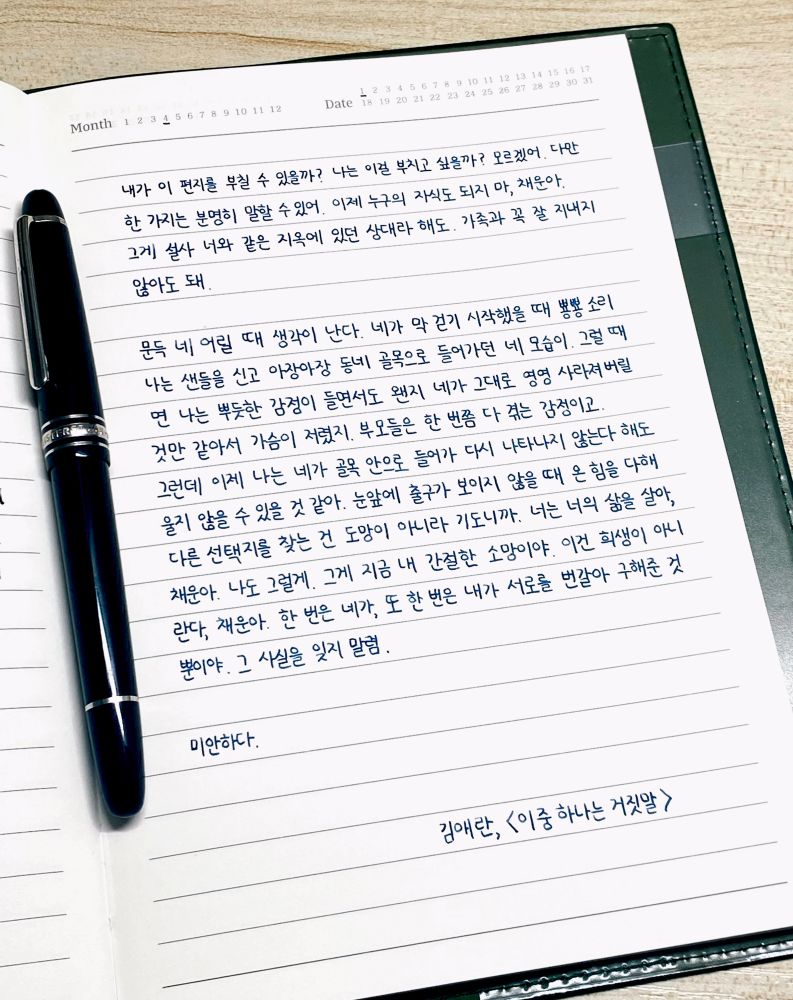 Month 1 2 3 4 5 6 7 8 9 10 11 12
Date 1 2 3 4 5 6 7 8 9 10 11 12 13 14 15 16 17
18 19 20 21 22 23 24 25 26 27 28 29 30 31
내가 이 편지를 부칠 수 있을까? 나는 이걸 부치고 싶을까? 모르겠어. 다만
한 가지는 분명히 말할 수 있어. 이제 누구의 자식도 되지 마, 채운아.
그게 설사 너와 같은 지옥에 있던 상대라 해도. 가족과 꼭 잘 지내지
않아도 돼.
문득 네 어릴 때 생각이 난다. 네가 막 걷기 시작했을 때 뿅뿅 소리
나는 샌들을 신고 아장아장 동네 골목으로 들어가던 네 모습이. 그럴 때
면 나는 뿌듯한 감정이 들면서도 왠지 네가 그대로 영영 사라져버릴
것만 같아서 가슴이 저렸지. 부모들은 한 번쯤 다 겪는 감정이고.
그런데 이제 나는 네가 골목 안으로 들어가 다시 나타나지 않는다 해도
울지 않을 수 있을 것 같아. 눈앞에 출구가 보이지 않을 때 온 힘을 다해
다른 선택지를 찾는 건 도망이 아니라 기도니까. 너는 너의 삶을 살아,
채운아. 나도 그럴게. 그게 지금 내 간절한 소망이야. 이건 희생이 아니
란다, 채운아. 한 번은 네가, 또 한 번은 내가 서로를 번갈아 구해준 것
뿐이야. 그 사실을 잊지 말렴.
미안하다.
김애란, <이중 하나는 거짓말>